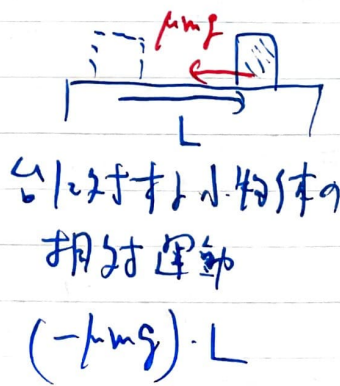 μmg
L
台に対する小物体の
相対運動
(-μmg)・L